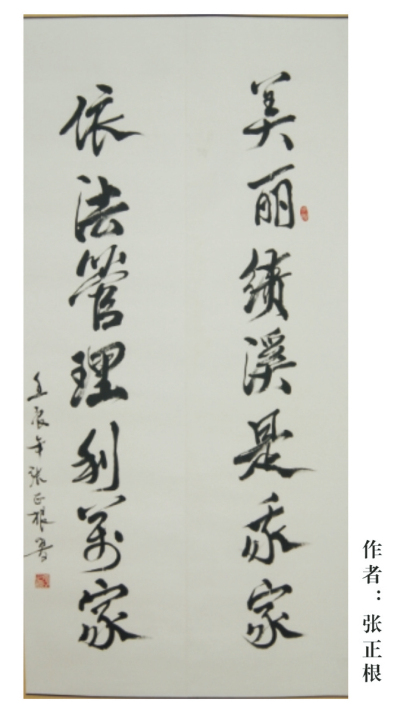 美丽绩溪是我家
依法管理利万家
壬辰年张正根书
作者：张正根